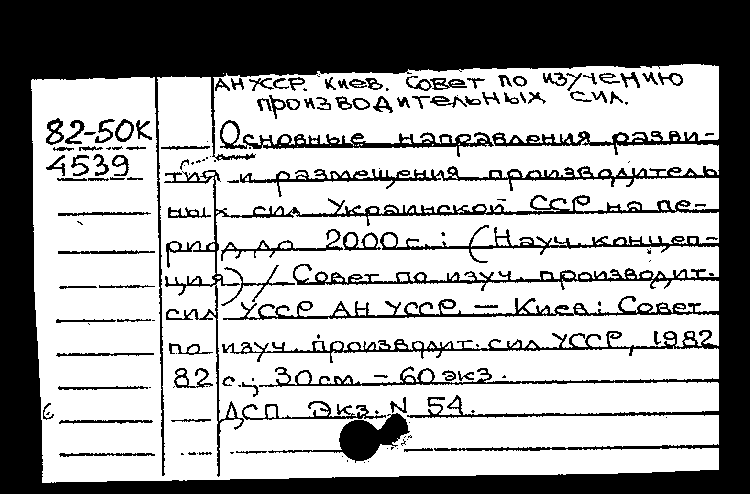 АН УССР. Киев. Совет по изучению
производительных сил.
82-50К
4539
Основные направления разви-
тия и размещения производитель
ных сил Украинской ССР на пе-
риод до 2000 г. : (Науч. концеп-
ция) / Совет по изуч. производит.
сил УССР АН УССР. — Киев : Совет
по изуч. производит. сил УССР, 1982
82 с.; 30 см. – 60 экз.
ДСП. Экз. N 54.